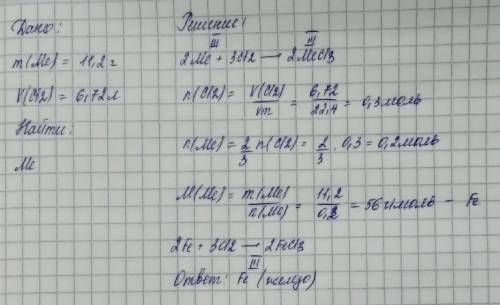 Дано:
m(Me) = 11,2 г
V(Cl2) = 6,72 л
Найти:
Me
Решение:
III III
2Me + 3Cl2 → 2MeCl3
n(Cl2) = V(Cl2)/Vm = 6,72/22,4 = 0,3 моль
n(Me) = 2/3 n(Cl2) = 2/3 · 0,3 = 0,2 моль
M(Me) = m(Me)/n(Me) = 11,2/0,2 = 56 г/моль – Fe
2Fe + 3Cl2 → 2FeCl3
III
Ответ: Fe (железо)